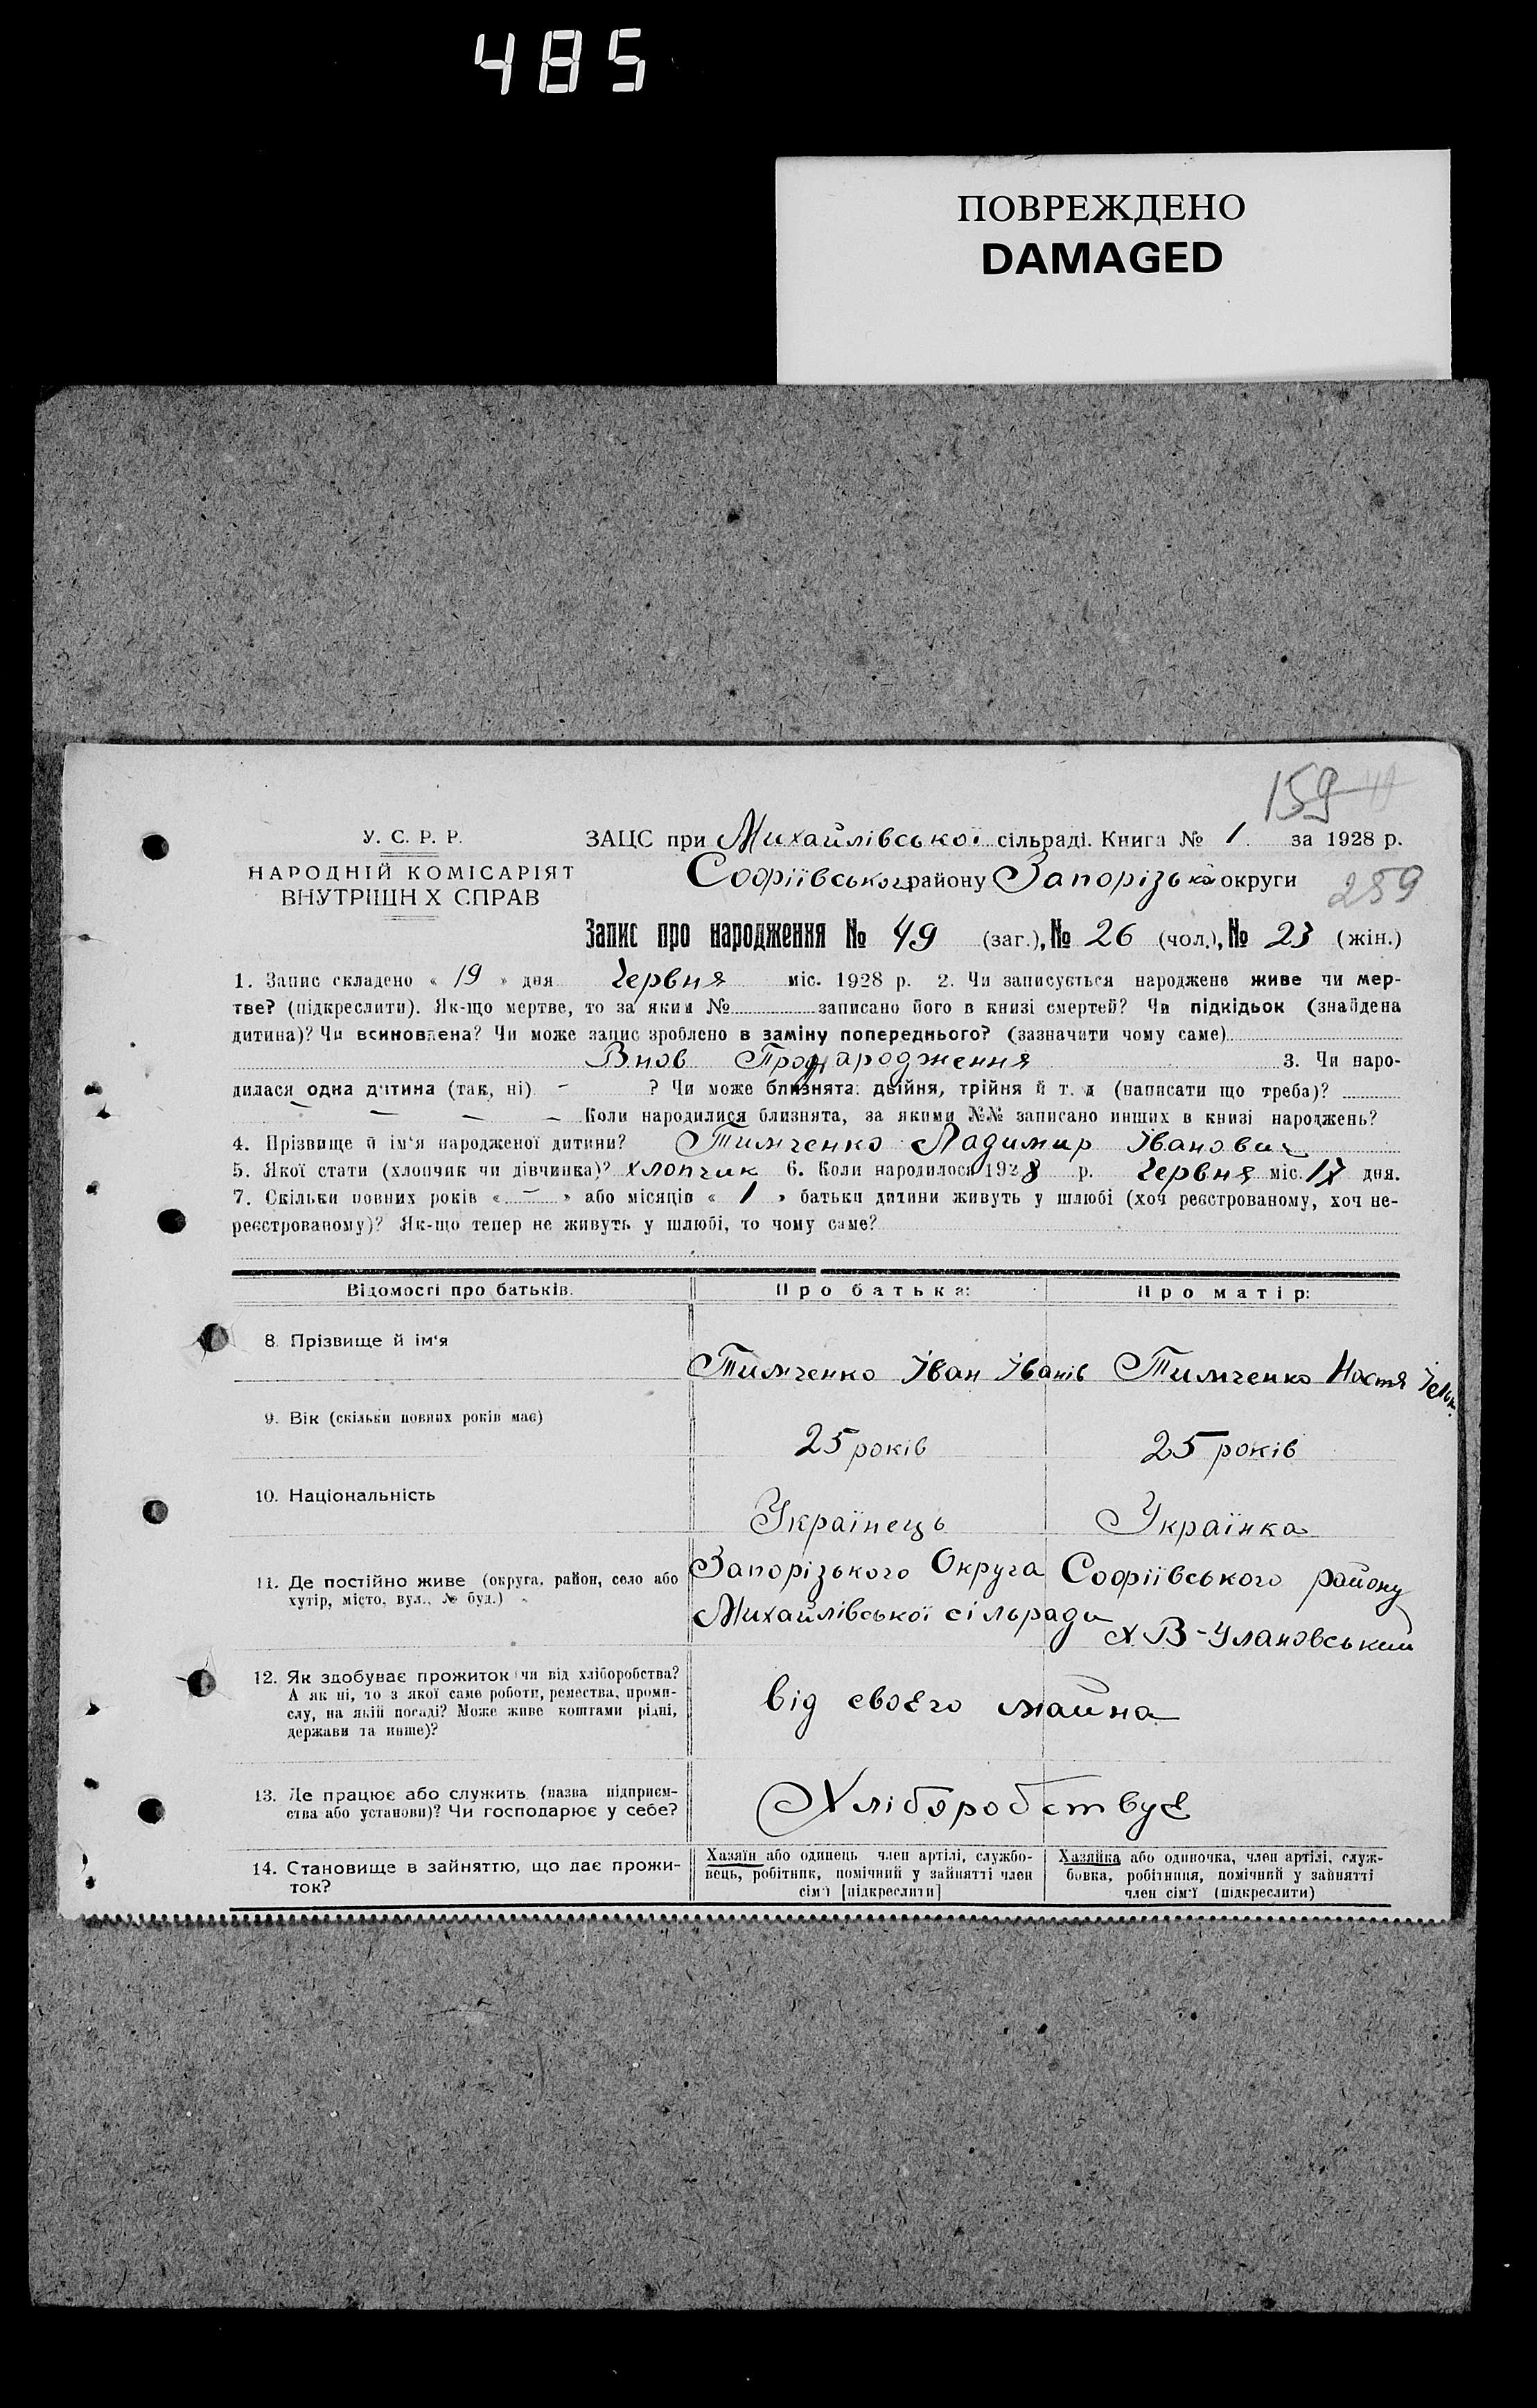 485
ПОВРЕЖДЕНО
DAMAGED
159
У. С. Р. Р.
НАРОДНІЙ КОМІСАРІЯТ
ВНУТРІШН Х СПРАВ
ЗАЦС при Михайлівської сільраді. Книга № 1 за 1928 р.
Софіївського району Запорізької округи
259
Запис про народження № 49 (заг.), № 26 (чол.), № 23 (жін.)
1. Запис складено « 19 » дня Червня міс. 1928 р. 2. Чи записується народжене живе чи мер-
тве? (підкреслити). Як-що мертве, то за яким № записано його в книзі смертей? Чи підкідьок (знайдена
дитина)? Чи всиновлена? Чи може запис зроблено в заміну попереднього? (зазначити чому саме)
Внов Про народження 3. Чи наро-
дилася одна дитина (так, ні) - ? Чи може близнята: двійня, трійня й т. д (написати що треба)?
— — — — Коли народилися близнята, за якими №№ записано инших в книзі народжень?
4. Прізвище й ім'я народженої дитини? Тимченко Ладимир Іванович
5. Якої стати (хлопчик чи дівчинка)? хлопчик 6. Коли народилося 1928 р. Червня міс. 17 дня.
7. Скільки повних років « — » або місяців « 1 » батьки дитини живуть у шлюбі (хоч реєстрованому, хоч не-
реєстрованому)? Як-що тепер не живуть у шлюбі, то чому саме?
Відомості про батьків. Про батька: Про матір:
8. Прізвище й ім'я
Тимченко Іван Іванів Тимченко Настя
9. Вік (скільки повних років має)
25 років 25 років
10. Національність
Українець Українка
11. Де постійно живе (округа, район, село або
хутір, місто, вул., № буд.)
Запорізького Округа Софіївського району
Михайлівської сільради х. В-Улановський
12. Як здобуває прожиток чи від хліборобства?
А як ні, то з якої саме роботи, ремества, проми-
слу, на якій посаді? Може живе коштами рідні,
держави та инше)?
від своєго майна
13. Де працює або служить (назва підприєм-
ства або установи)? Чи господарює у себе?
Хліборобствує
14. Становище в зайняттю, що дає прожи-
ток?
Хазяїн або одинець член артілі, службо-
вець, робітник, помічний у зайнятті член
сім'ї [підкреслити]
Хазяйка або одиночка, член артілі, служ-
бовка, робітниця, помічний у зайнятті
член сім'ї (підкреслити)